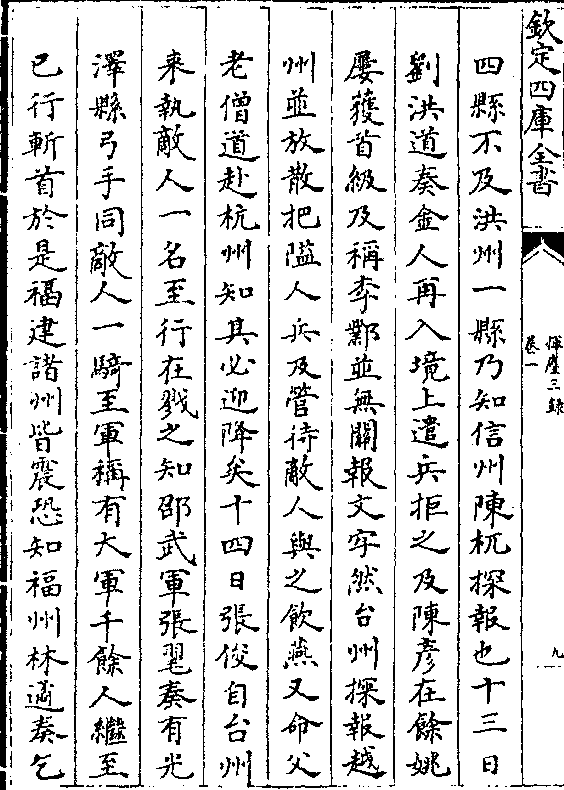 欽定四庫全書
揮麈三錄
卷一
九
四縣不及洪州一縣乃知信州陳杌探報也十三日
劉洪道奏金人再入境上遣兵拒之及陳彦在餘姚
屢獲首級及稱李鄴並無關報文字然台州探報越
州並放散把隘人兵及管待敵人與之飲燕又命父
老僧道赴杭州知其必迎降矣十四日張俊自台州
來執敵人一名至行在戮之知邵武軍張毣奏有光
澤縣弓手同敵人一騎至軍稱有大軍千餘人繼至
已行斬首於是福建諸州皆震恐知福州林遹奏乞